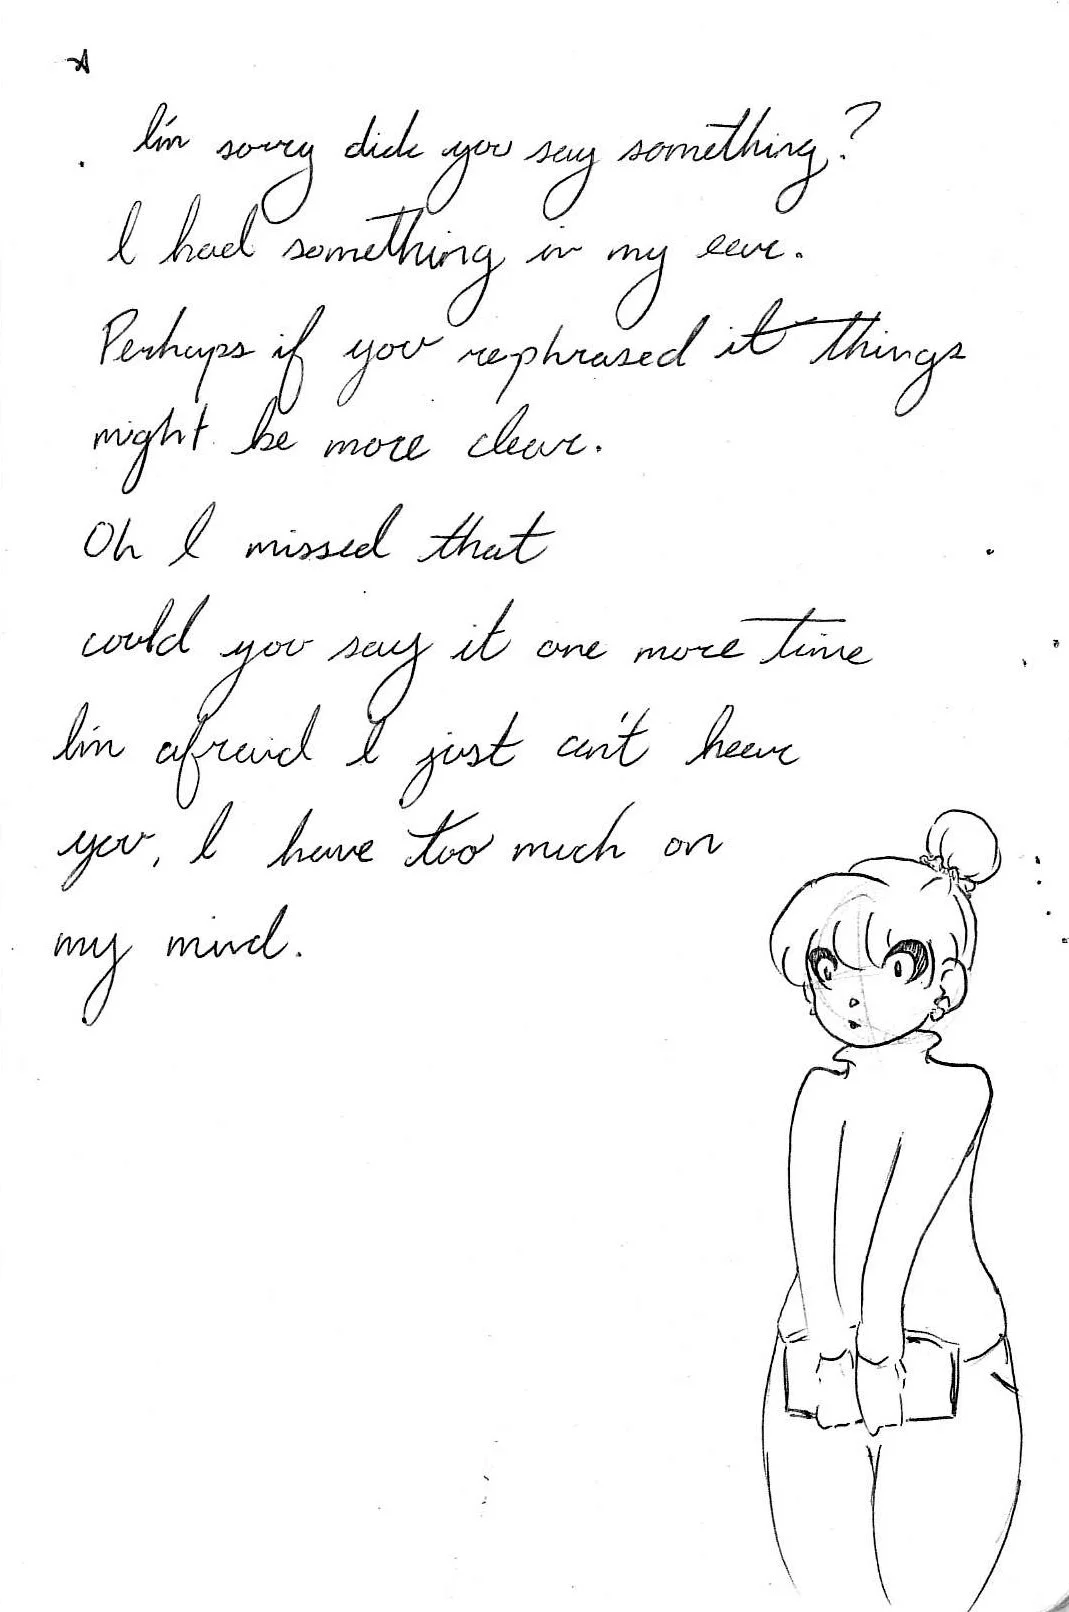 I'm sorry did you say something?
I had something in my ear.
Perhaps if you rephrased it things
might be more clear.
Oh I missed that
could you say it one more time
I'm afraid I just can't hear
you, I have too much on
my mind.